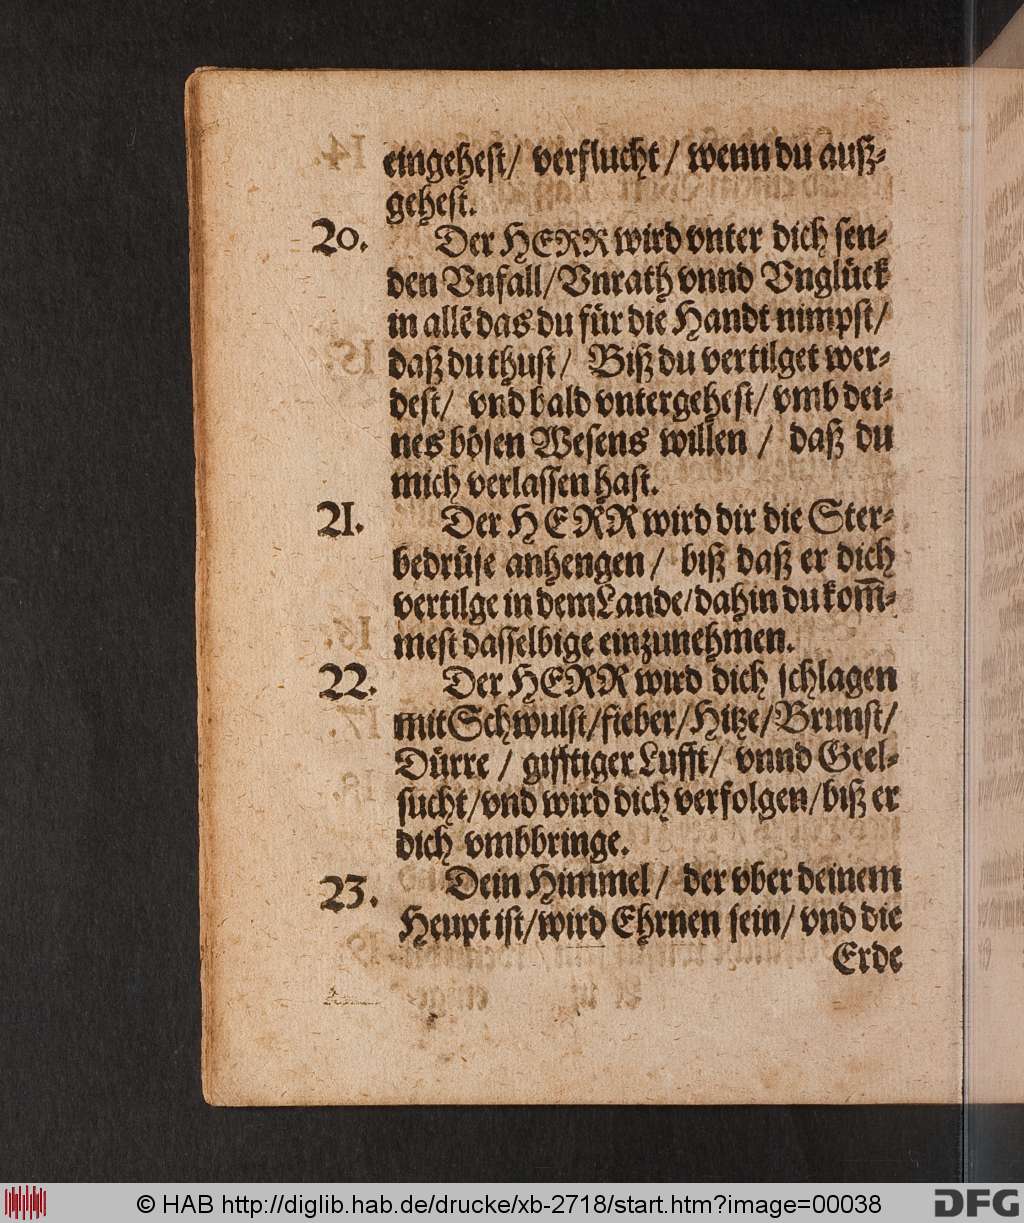 eingehest/ verflucht/ wenn du auß-
gehest.
20. Der HERR wird vnter dich sen-
den Vnfall/Vnrath vnnd Vnglück
in allē das du für die Handt nimpst/
daß du thust/ Biß du vertilget wer-
dest/ vnd bald vntergehest/ vmb dei-
nes bösen Wesens willen / daß du
mich verlassen hast.
21. Der HERR wird dir die Ster-
bedrüse anhengen/ biß daß er dich
vertilge in dem Lande/dahin du kom̄-
mest dasselbige einzunehmen.
22. Der HERR wird dich schlagen
mit Schwulst/fieber/Hitze/Brunst/
Dürre / gifftiger Lufft/ vnnd Geel-
sucht/vnd wird dich verfolgen/biß er
dich vmbbringe.
23. Dein Himmel/ der vber deinem
Heupt ist/wird Ehrnen sein/ vnd die
Erde
© HAB http://diglib.hab.de/drucke/xb-2718/start.htm?image=00038
DFG